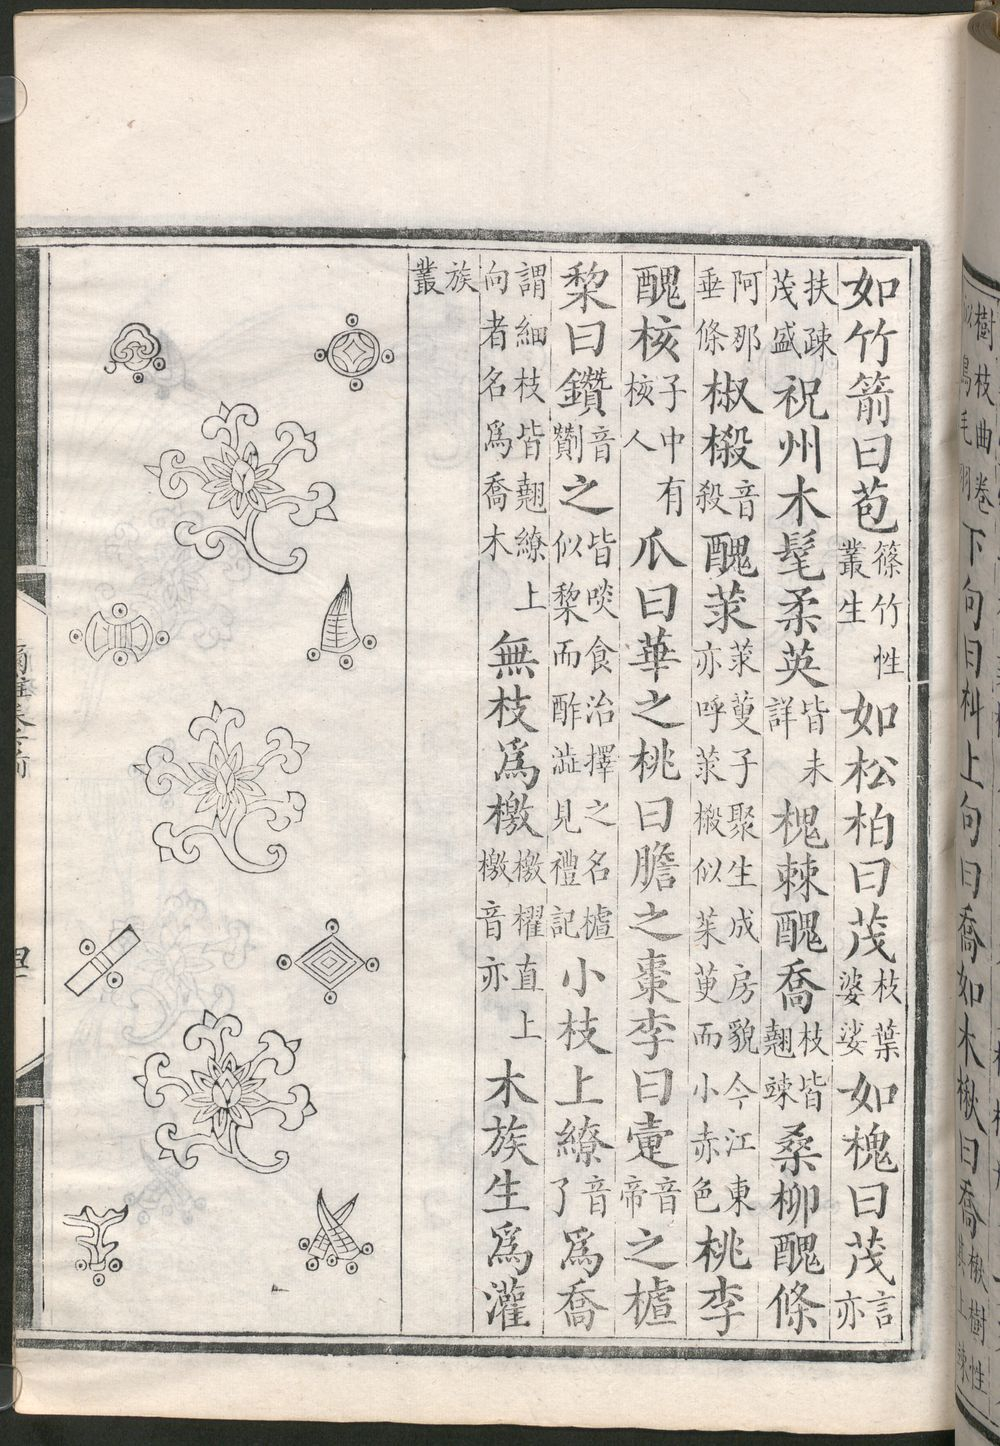 樹枝曲卷似鳥毛羽下句曰朻上句曰喬如木楸曰喬楸樹性上竦
如竹箭曰苞篠竹性叢生如松柏曰茂枝葉婆娑如槐曰茂言亦
扶疎茂盛祝州木髦柔英皆未詳槐棘醜喬枝皆翹竦桑柳醜條
阿那垂條椒樧音殺醜莍莍萸子聚生成房貌今江東亦呼莍樧似茱萸而小赤色桃李
醜核子中有核人瓜曰華之桃曰膽之棗李曰疐音帝之樝
棃曰鑽音劗之皆啖食治擇之名樝似棃而酢澁見禮記小枝上繚音了爲喬
謂細枝皆翹繚上向者名爲喬木無枝爲檄檄櫂直上檄音亦木族生爲灌
族叢